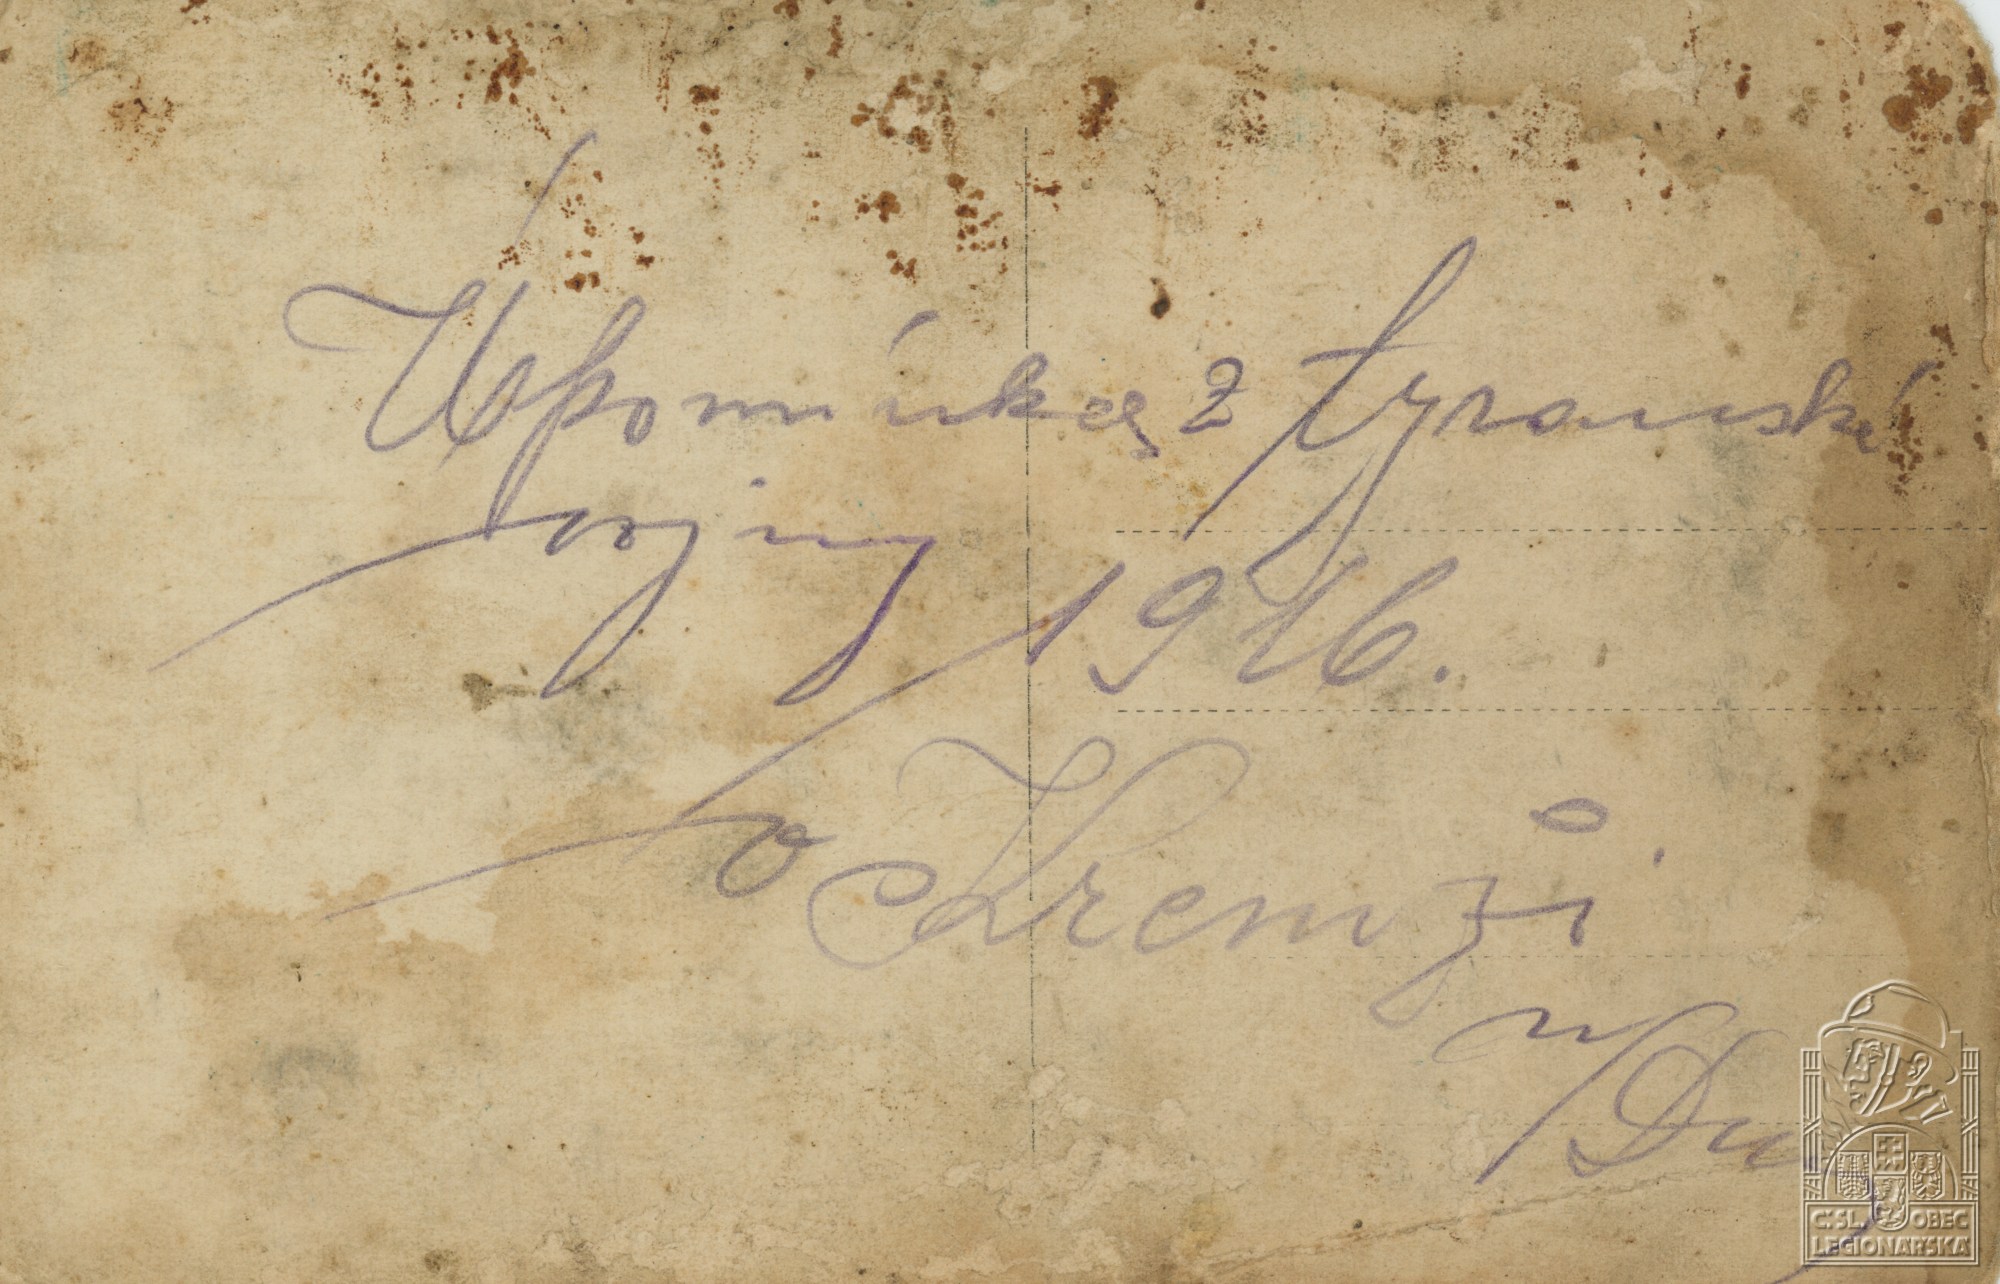 Upomínka z tyranské
vojny 1916.
v Kremži
n/Du
ČSL. OBEC
LEGIONÁŘSKÁ